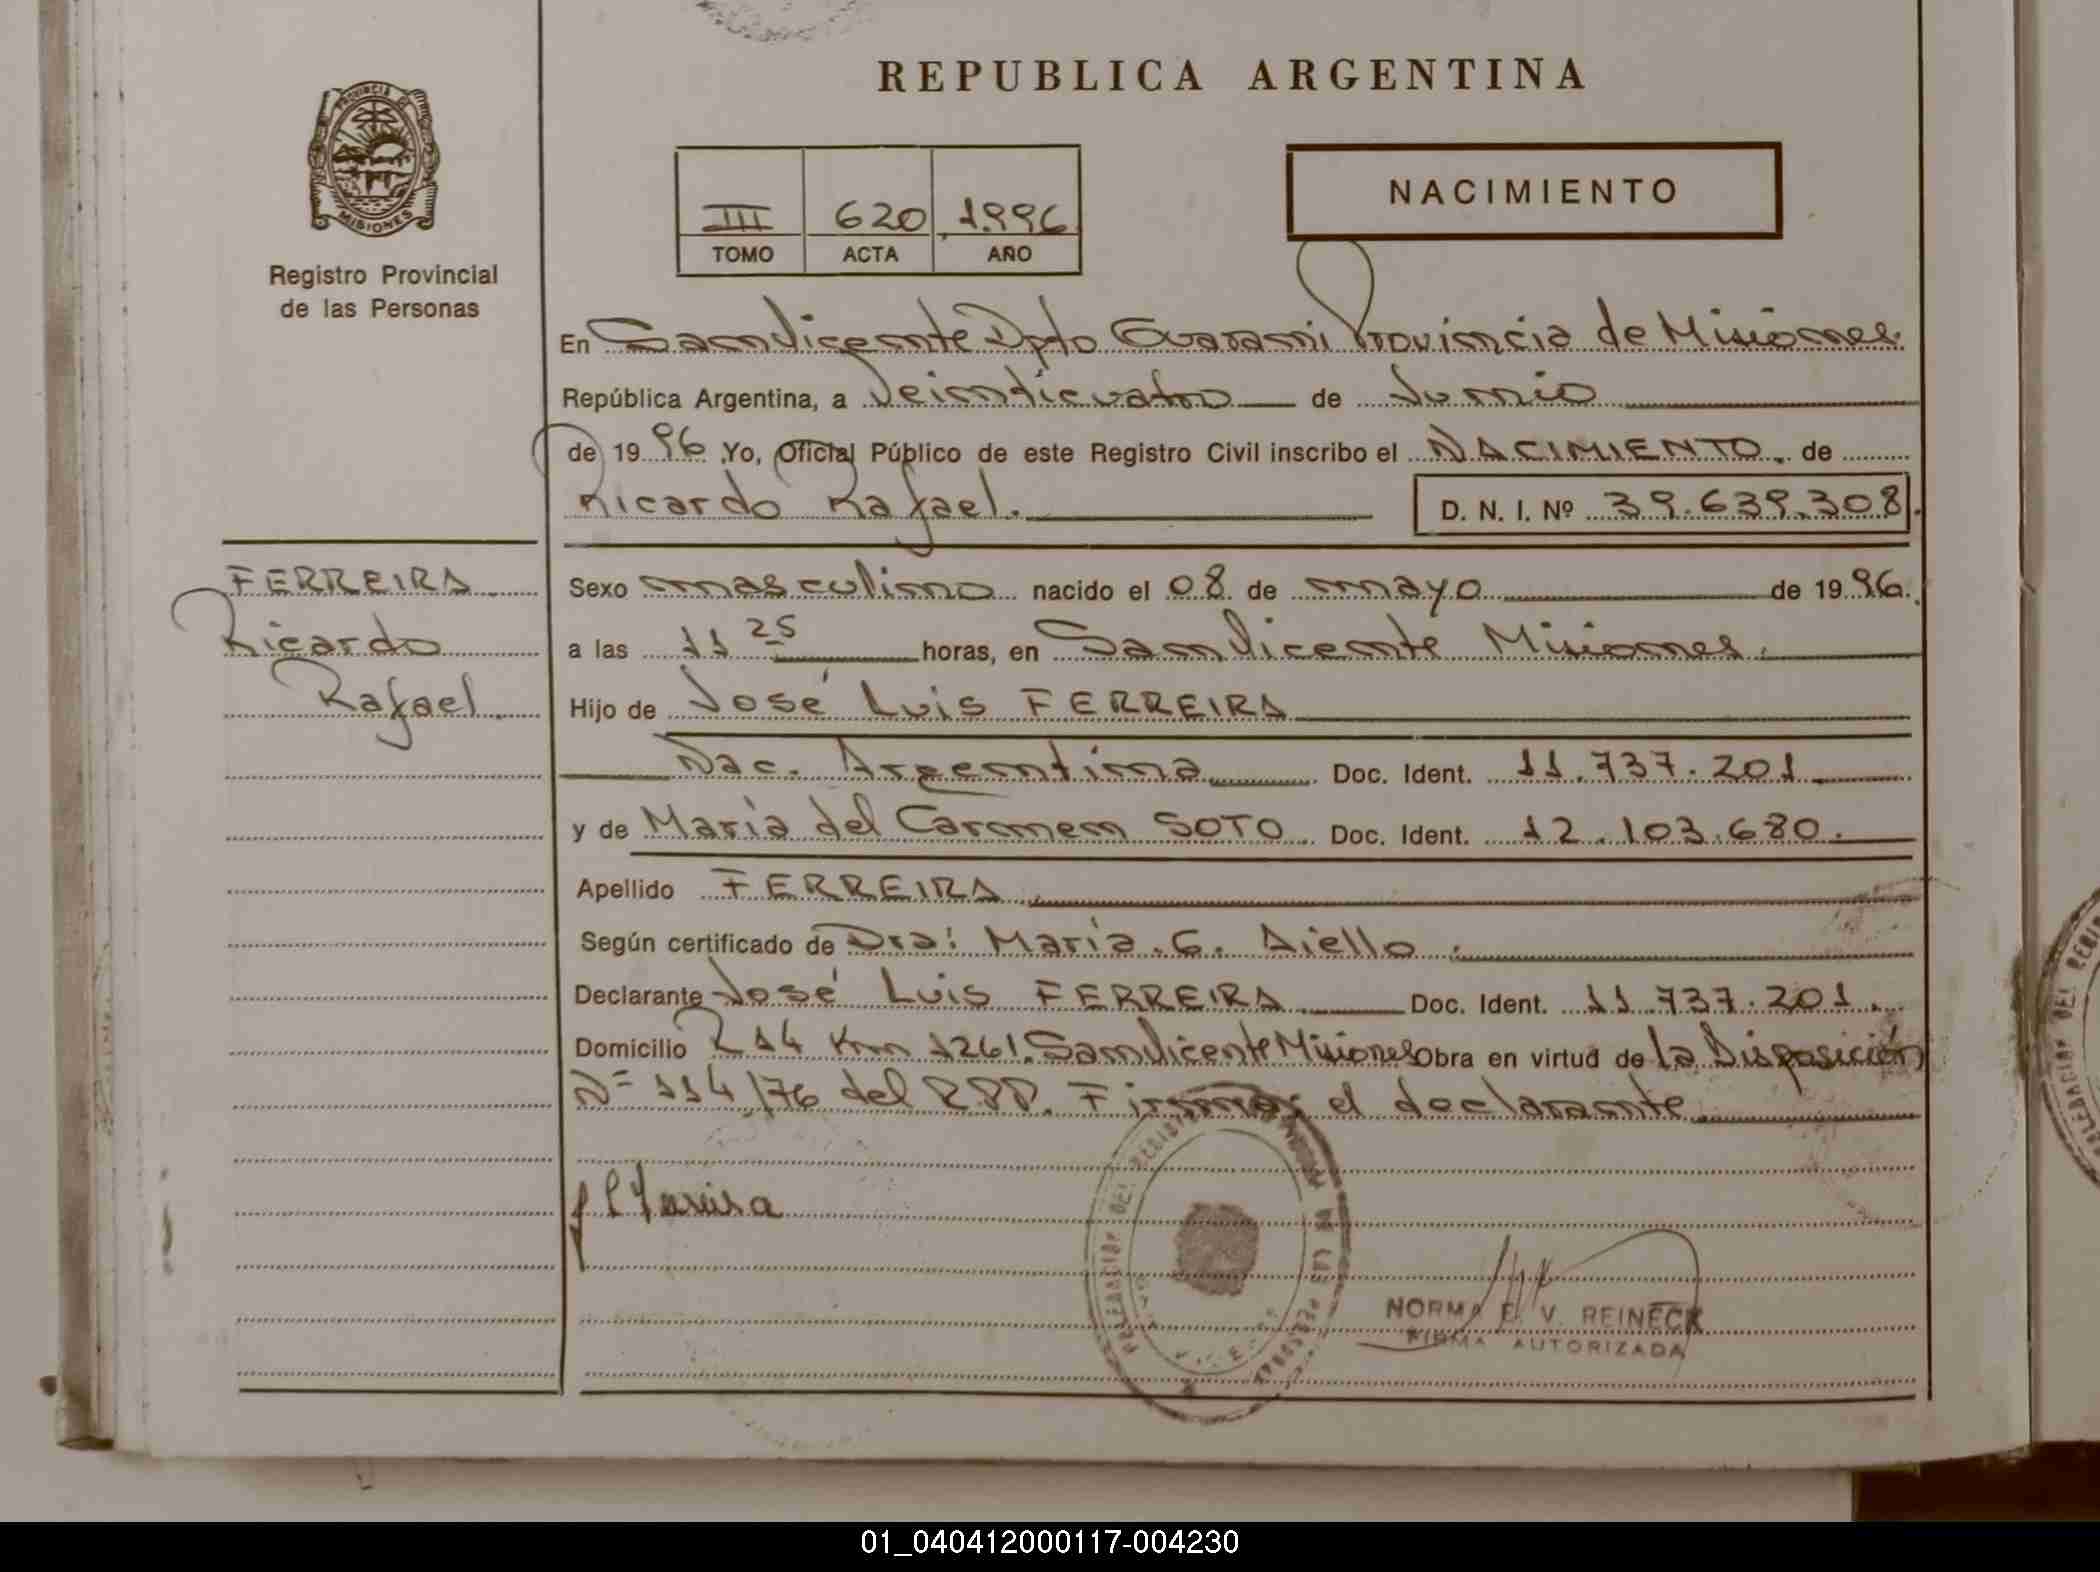 REPUBLICA ARGENTINA
PROVINCIA DE
MISIONES
Registro Provincial
de las Personas
III 620 1.996
TOMO ACTA AÑO
NACIMIENTO
En San Vicente Dpto Guarani Provincia de Misiones.
República Argentina, a Veinticuatro de Junio
de 1996 Yo, Oficial Público de este Registro Civil inscribo el NACIMIENTO. de
Ricardo Rafael. D. N. I. Nº 39.639.308.
FERREIRA
Ricardo
Rafael.
Sexo masculino nacido el 08 de mayo de 1996.
a las 11 25 horas, en San Vicente Misiones.
Hijo de José Luis FERREIRA
Nac. Argentina Doc. Ident. 11.737.201.
y de Maria del Carmen SOTO. Doc. Ident. 12.103.680.
Apellido FERREIRA
Según certificado de Dra: Maria. G. Aiello.
Declarante José Luis FERREIRA Doc. Ident. 11.737.201.
Domicilio R 14 Km 1261. San Vicente Misiones Obra en virtud de La Disposición
Nº 114/76 del RPP. Firma: el declarante.
J L Ferreira
DELEGACION DEL REGISTRO DE LAS PERSONAS
NORMA E. V. REINECK
FIRMA AUTORIZADA
01_040412000117-004230